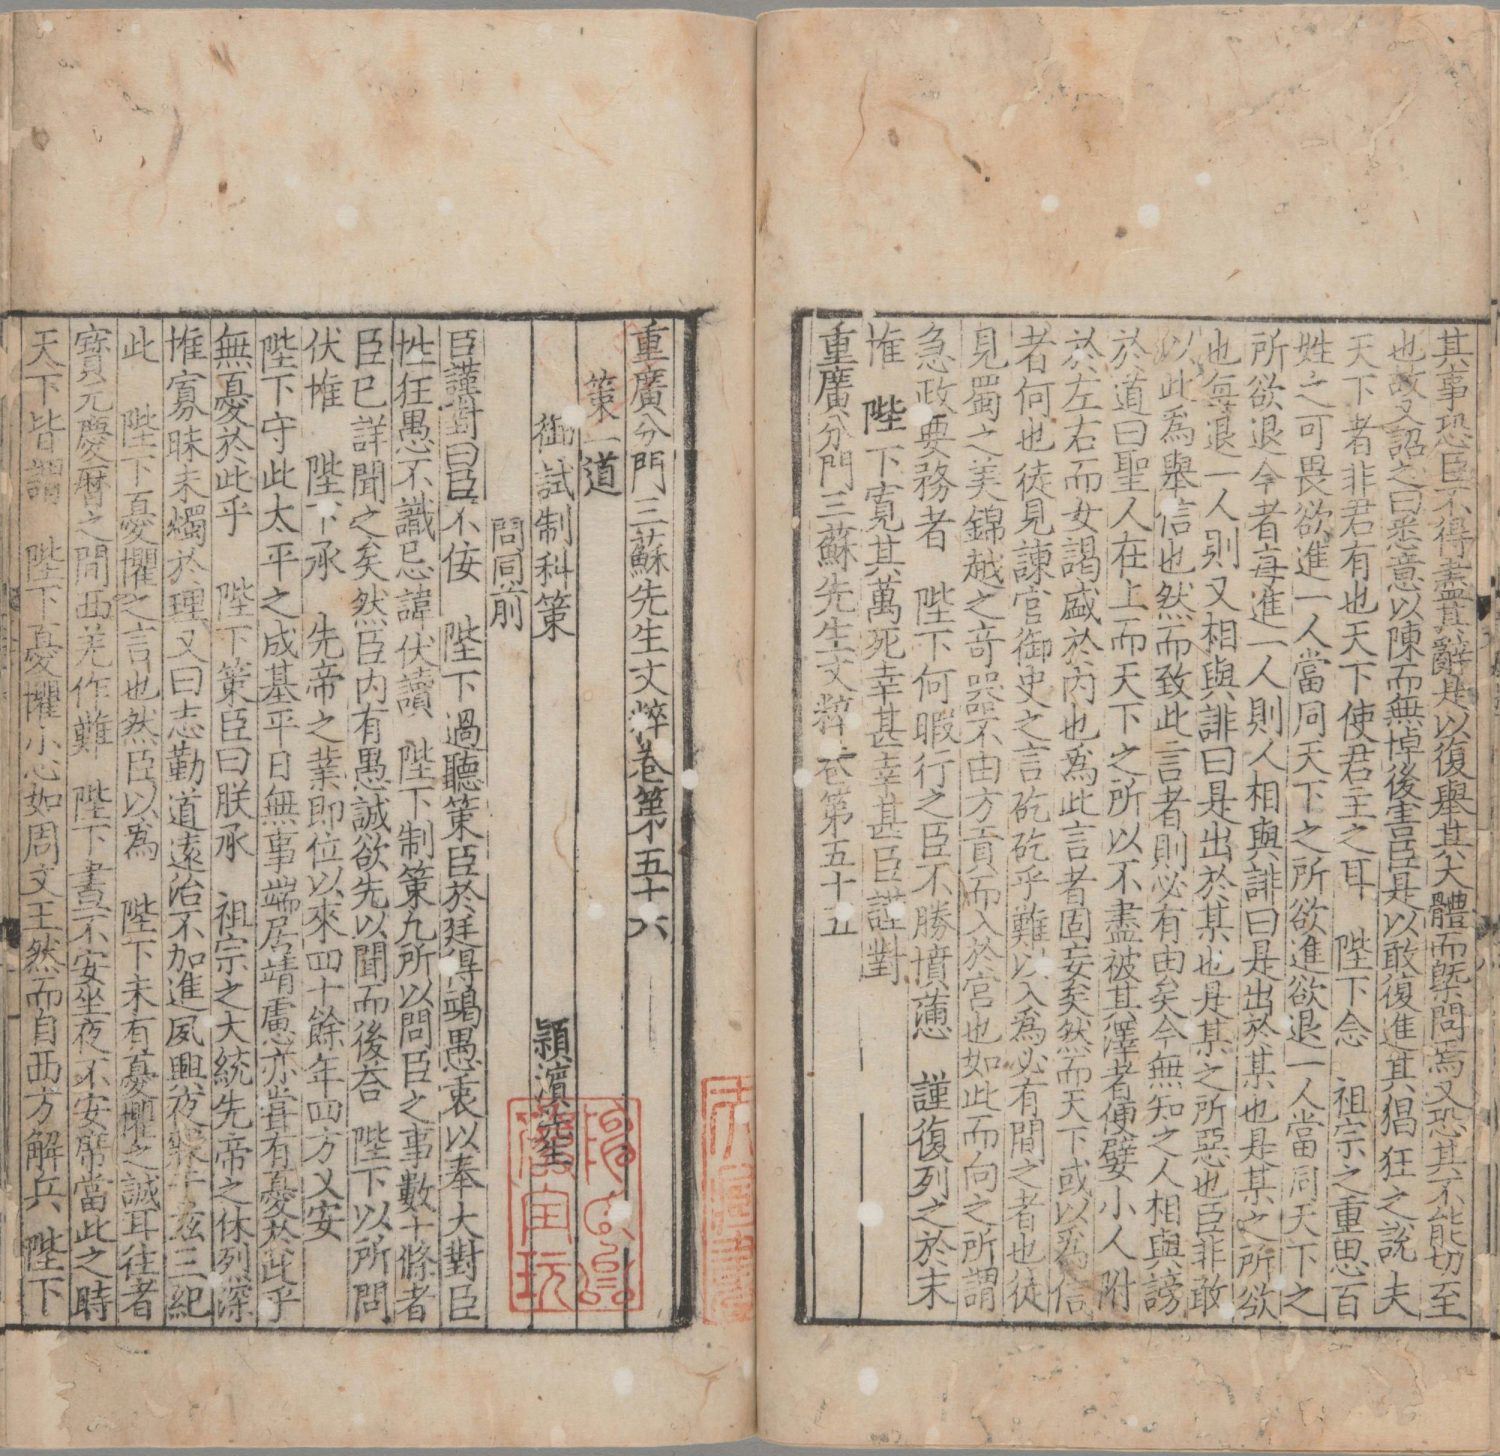 其事恐臣不得盡其辭是以復舉其大體而槩問焉又恐其不能切至
也故又詔之曰悉意以陳而無悼後害臣是以敢復進其猖狂之說夫
天下者非君有也天下使君主之耳　陛下念　祖宗之重思百
姓之可畏欲進一人當同天下之所欲進欲退一人當同天下之
所欲退今者每進一人則人相與誹曰是出於某也是某之所欲
也每退一人則又相與誹曰是出於某也是某之所惡也臣非敢
以此為舉信也然而致此言者則必有由矣今無知之人相與謗
於道曰聖人在上而天下之所以不盡被其澤者便嬖小人附
於左右而女謁盛於內也為此言者固妄矣然而天下或以為信
者何也徒見諫官御史之言矻矻乎難以入為必有間之者也徒
見蜀之美錦越之奇器不由方貢而入於官也如此而向之所謂
急政要務者　陛下何暇行之臣不勝憤懣　謹復列之於末
惟　陛下寬其萬死幸甚幸甚臣謹對
重廣分門三蘇先生文粹卷第五十五
重廣分門三蘇先生文粹卷第五十六
策一道
御試制科策　潁濱先生
問同前
臣謹對曰臣不佞　陛下過聽策臣於廷得竭愚衷以奉大對臣
性狂愚不識忌諱伏讀　陛下制策凡所以問臣之事數十條者
臣已詳聞之矣然臣內有愚誠欲先以聞而後荅　陛下以所問
伏惟　陛下承　先帝之業即位以來四十餘年四方乂安
陛下守此太平之成基平日無事端居靖慮亦嘗有憂於此乎
無憂於此乎　陛下策臣曰朕承　祖宗之大統先帝之休列深
惟寡昧未燭於理又曰志勤道遠治不加進夙興夜寐于茲三紀
此　陛下憂懼之言也然臣以為　陛下未有憂懼之誠耳往者
寶元慶曆之間西羌作難　陛下晝不安坐夜不安席當此之時
天下皆謂　陛下憂懼小心如周文王然而自西方解兵　陛下